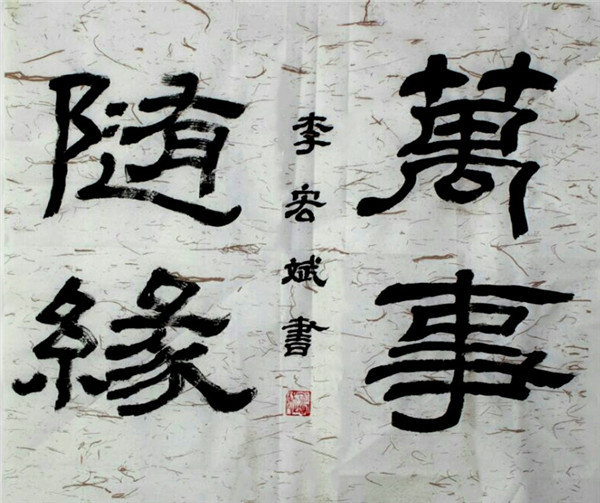 萬事
隨緣
李宏斌書